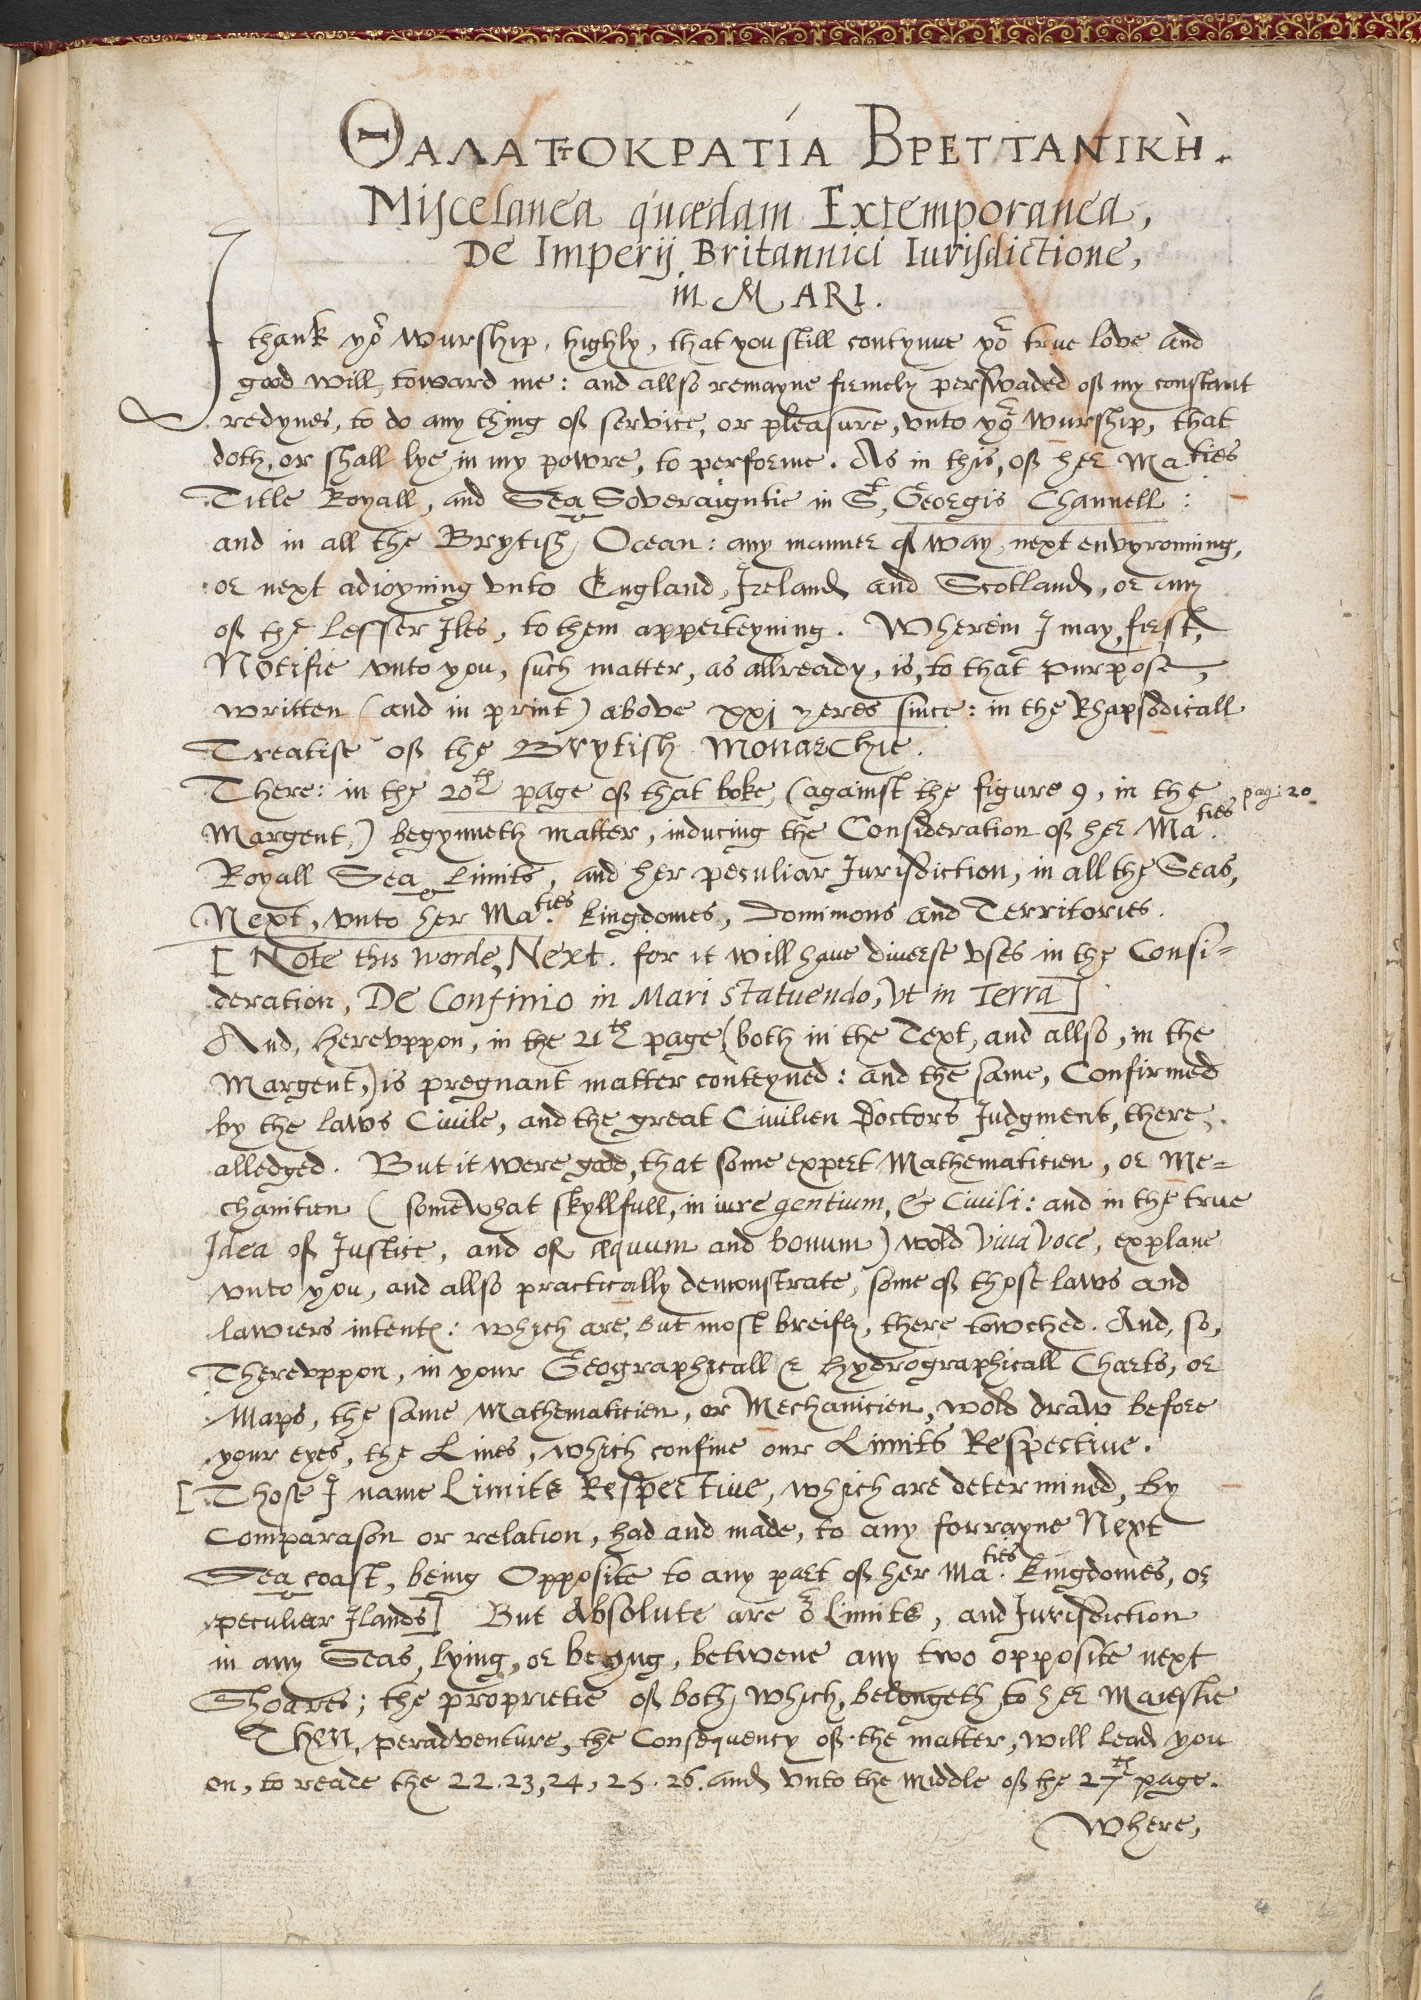 ΘΑΛΑΤΤΟΚΡΑΤίΑ ΒΡΕΤΤΑΝΙΚῊ.
Miscelanea quædam Extemporanea,
De Imperij Britannici Iurisdictione,
in MARI.
I thank yor Wurship, highly, that you still contynue yor true love and
good will, toward me: and allso remayne firmely perswaded of my constant
redynes, to do any thing of service, or pleasure, vnto yor Wurship, that
doth, or shall lye in my powre, to performe. As in this, of her Maties
Title Royall, and Sea Soveraigntie in St, Georgis Channell:
and in all the Brytish Ocean: any manner of way, next envyronning,
or next adioyning vnto England, Ireland and Scotland, or any
of the Lesser Iles, to them apperteyning. Wherein I may, first,
Notifie vnto you, such matter, as allready, is, to that purpose,
written (and in print) above xxj yeres since: in the Rhapsodicall
Treatise of the Brytish Monarchie.
There: in the 20th page of that boke, (against the figure 9, in the
pag: 20
Margent,) begynneth matter, inducing the Consideration of her Maties
Royall Sea Limits, and her peculiar Iurisdiction, in all the Seas,
Next, vnto her Maties kingdomes, Dominions and Territories.
[ Note this worde, Next. for it will have diverse vses in the Consi=
deration, De Confinio in Mari statuendo, vt in Terra]
And, herevppon, in the 21th page, (both in the Text, and allso, in the
Margent,) is pregnant matter conteyned: and the same, Confirmed
by the Laws Civile, and the great Civilien Doctors Iudgment, there,
alledged. But it were good, that some expert Mathematicien, or Me=
chanicien (somewhat skyllfull, in iure gentium, & Civili: and in the true
Idea of Iustice, and of æquum and bonum) wold viua voce, explane
vnto you, and allso practically demonstrate, some of those laws and
lawiers intents: which are, but most breifly, there towched. And, so,
Therevppon, in your Geographicall & Hydrographicall Charts, or
Maps, the same Mathematicien, or Mechanicien, wold draw before
your eyes, the Lines, which confine our Limits Respective.
[ Those I name Limits Respective, which are determined, by
Comparason or relation, had and made, to any forrayne Next
Sea coast, being Opposite to any part of her Maties kingdomes, or
peculier Ilands] But Absolute are or Limits, and Iurisdiction
in any Seas, lying, or beyng, betwene any two opposite next
Shoares; the proprietie of both, which, belongeth to her Maiestie
Then, peradventure, the Consequency of the matter, will lead you
on, to reade the 22. 23, 24, 25. 26. and vnto the middle of the 27th page.
Where,